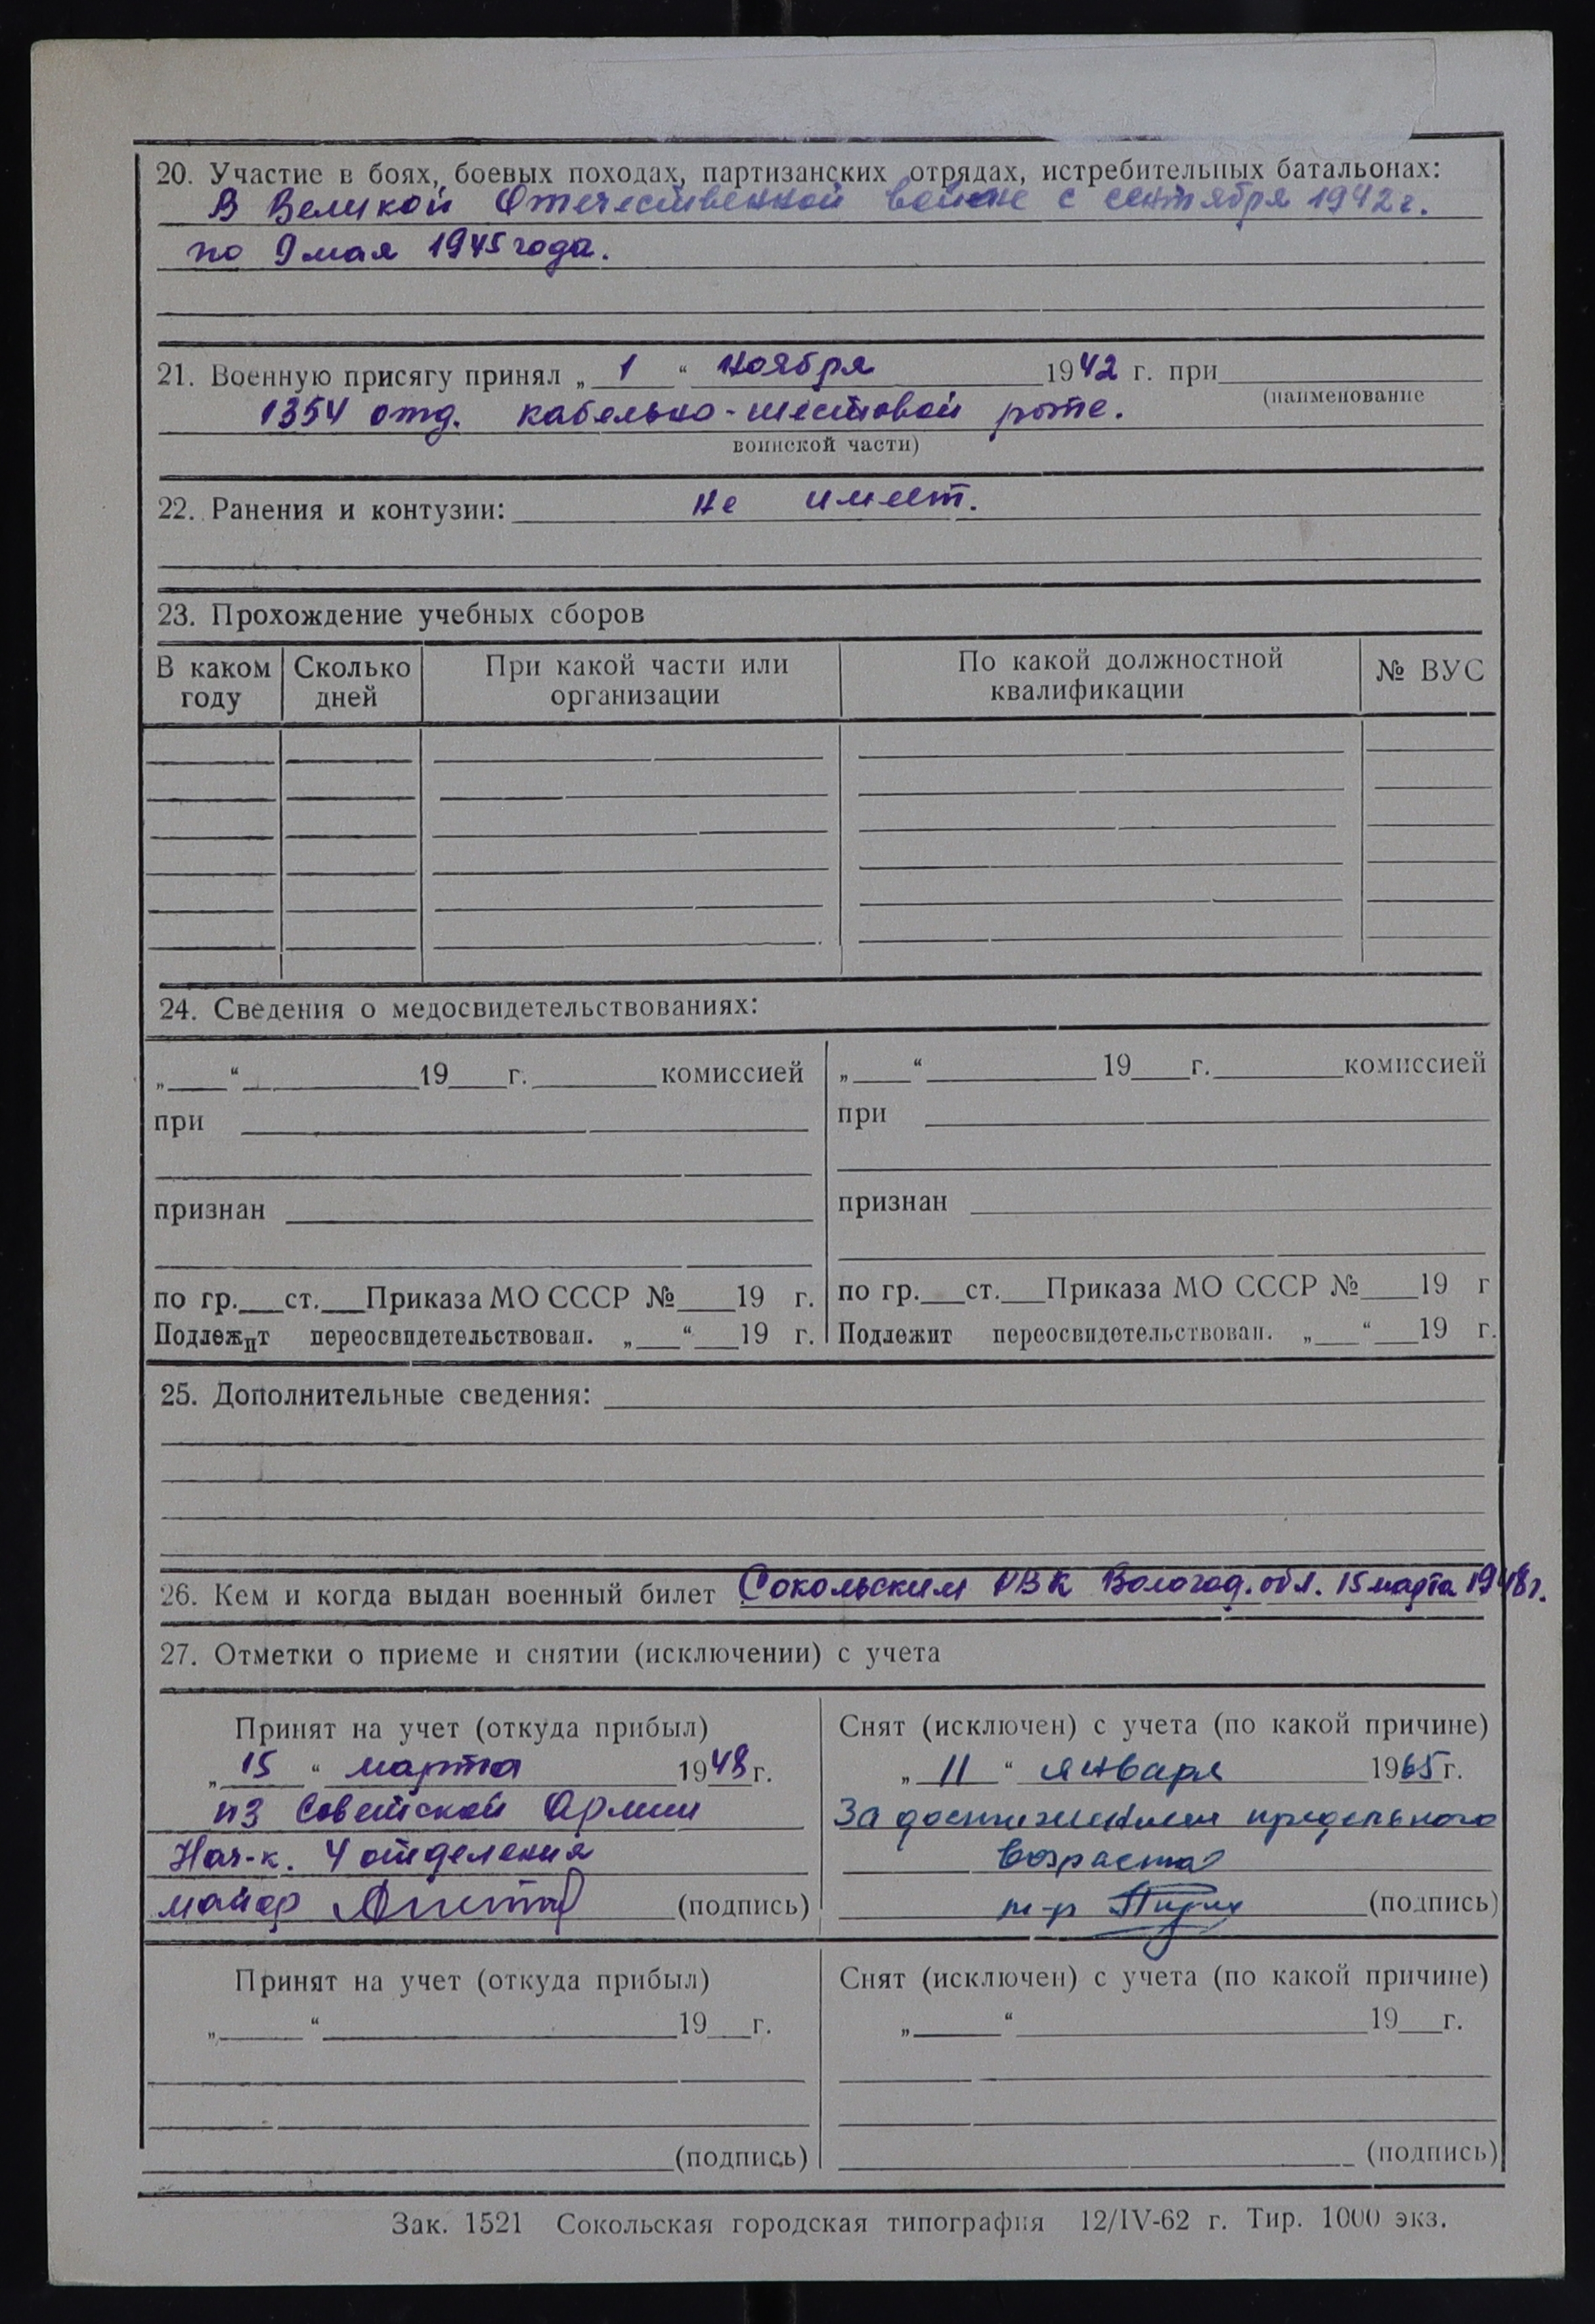 20. Участие в боях, боевых походах, партизанских отрядах, истребительных батальонах:
В Великой Отечественной войне с сентября 1942 г.
по 9 мая 1945 года.
21. Военную присягу принял „ 1 “ ноября 1942 г. при
(наименование
1354 отд. кабельно-шестовой роте.
воинской части)
22. Ранения и контузии: не имеет.
23. Прохождение учебных сборов
В каком году Сколько дней При какой части или организации По какой должностной квалификации № ВУС
24. Сведения о медосвидетельствованиях:
„___“ ______ 19___г. ______ комиссией „___“ ______ 19___г. ______ комиссией
при при
признан признан
по гр.___ст.___Приказа МО СССР №___19 г. по гр.___ст.___Приказа МО СССР №___19 г
Подлежит переосвидетельствован. „___“ ___19 г. Подлежит переосвидетельствован. „___“ ___19 г.
25. Дополнительные сведения:
26. Кем и когда выдан военный билет Сокольским РВК Вологод. обл. 15 марта 1948 г.
27. Отметки о приеме и снятии (исключении) с учета
Принят на учет (откуда прибыл) Снят (исключен) с учета (по какой причине)
„ 15 “ марта 1948 г. „ 11 “ января 1965 г.
из Советской Армии За достижением предельного
Нач-к. 4 отделения возраста
майор (подпись) м-р (подпись)
Принят на учет (откуда прибыл) Снят (исключен) с учета (по какой причине)
„___“ ______ 19___г. „___“ ______ 19___г.
(подпись) (подпись)
Зак. 1521 Сокольская городская типография 12/IV-62 г. Тир. 1000 экз.